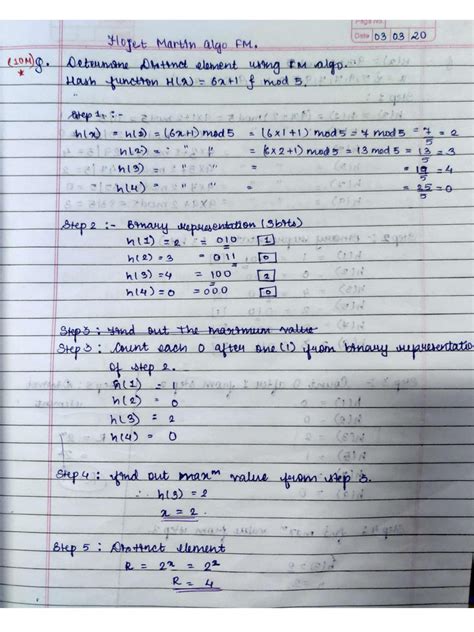 Page No.
Date 03 03 20
Flojet Martin algo FM.
(10M) Q. Determine Distinct element using FM algo.
* Hash function H(x) = 6x+1 } mod 5.
Step 1 :-
h(x) = h(1) = (6x+1) mod 5 = (6x1+1) mod 5 = 7 mod 5 = 7/5 = 2
h(2) = : " " = (6x2+1) mod 5 = 13 mod 5 = 13/5 = 3
h(3) = " " = 19/5 = 4
h(4) = " = 25/5 = 0
Step 2 :- Binary representation (3bits)
h(1) = 2 = 010 1
h(2) = 3 = 011 0
h(3) = 4 = 100 2
h(4) = 0 = 000 0
Step 3 : Find out the maximum value
Step 3 : Count each 0 after one (1) from binary representation
of step 2.
h(1) = 1
h(2) = 0
h(3) = 2
h(4) = 0
Step 4 : find out maxm value from step 3.
∴ h(3) = 2
x = 2
Step 5 : Distinct element
R = 2x = 22
R = 4